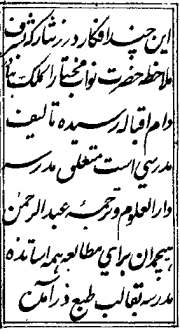 این چند افکار در رنثار که شرف
ملاحظهٔ حضرت نواب مختار الملک بهادر
دام اقباله رسیده تالیف
مدرسی است متعلق مدرسه
دار العلوم و ترجمه عبد الرحمن
هیچمدان برای مطالعه همه اساتذه
مدرسه بقالب طبع در آمد